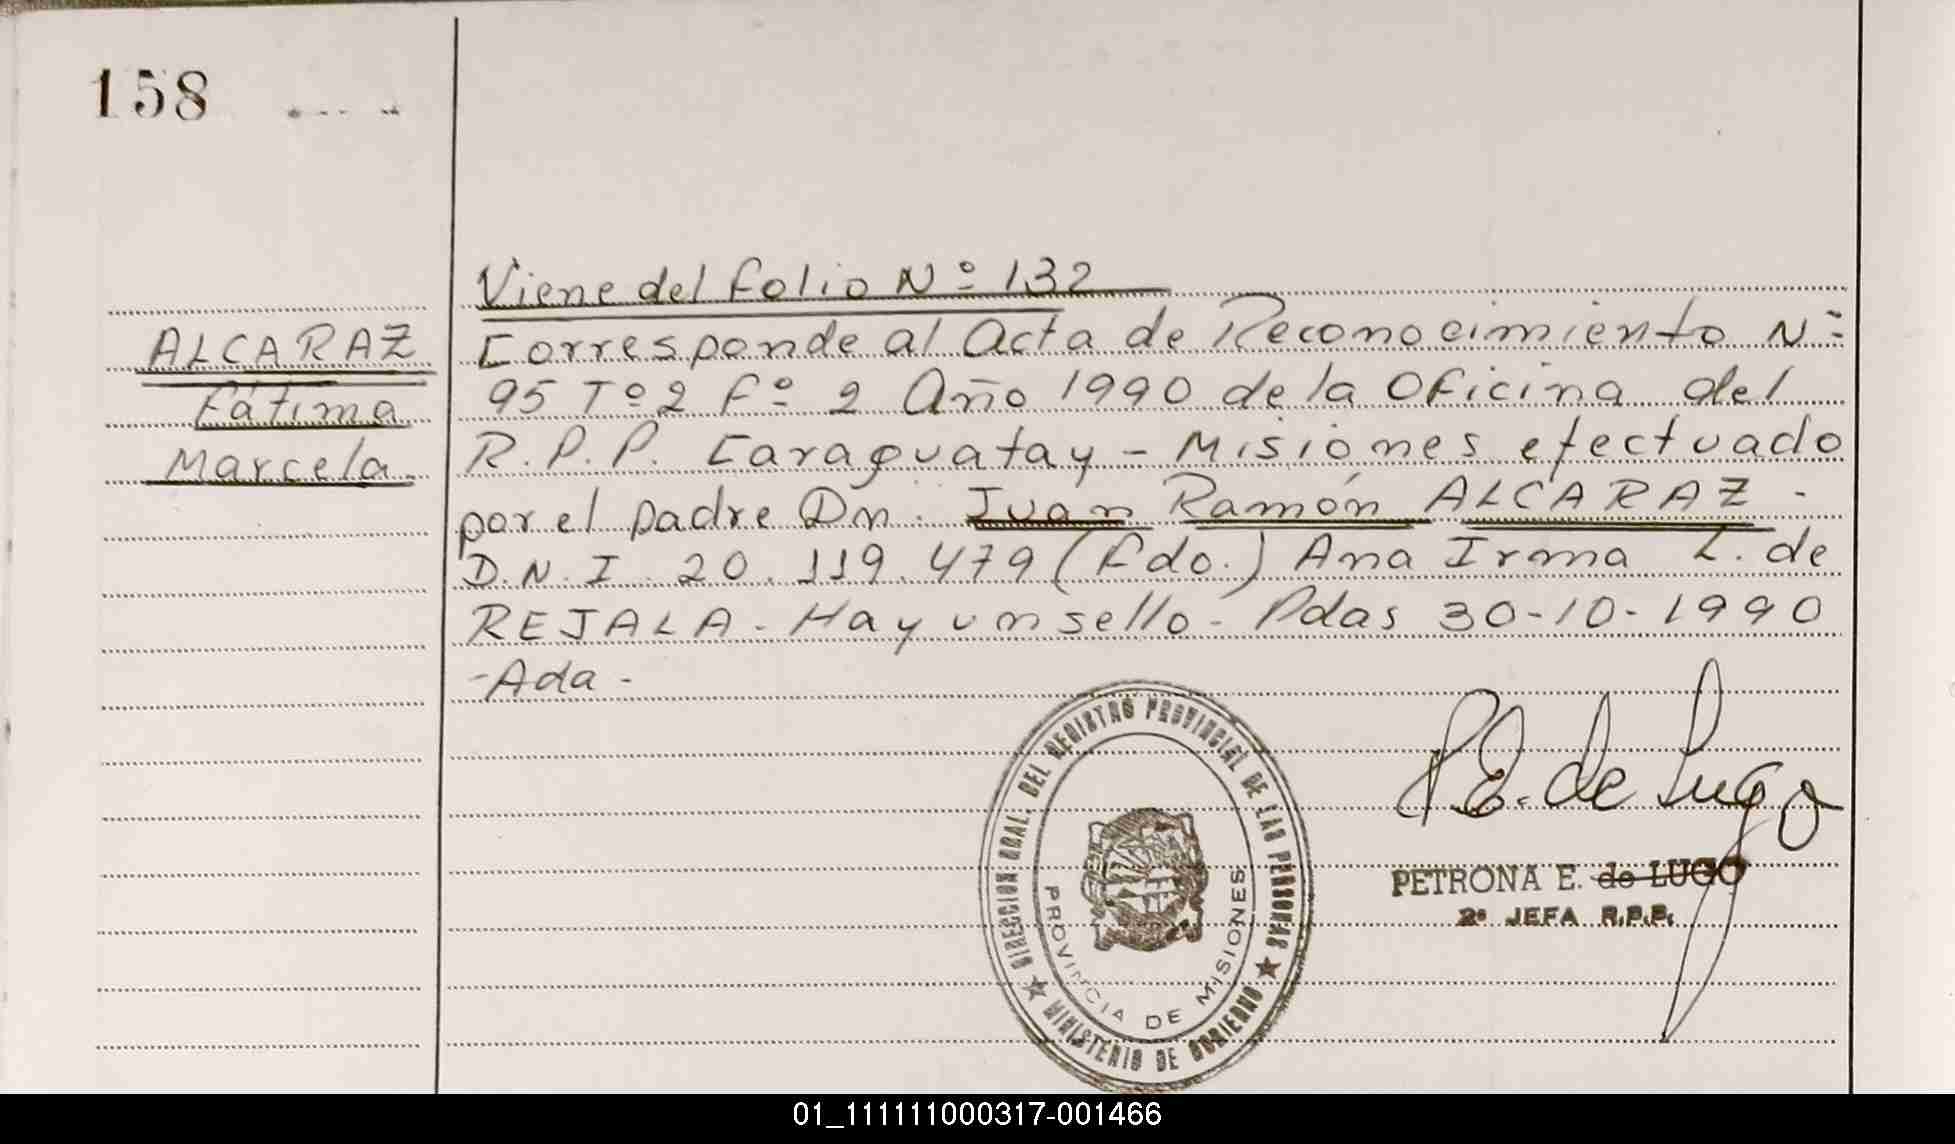 158
ALCARAZ
Fátima
Marcela
Viene del folio Nº 132
Corresponde al Acta de Reconocimiento Nº
95 Tº 2 fº 2 Año 1990 de la Oficina del
R.P.P. Caraguatay - Misiones efectuado
por el padre Dn. Juan Ramón ALCARAZ -
D.N.I. 20.119.479 (Fdo.) Ana Irma L. de
REJALA - Hay un sello - Pdas 30-10-1990
- Ada -
P.E. de Lugo
PETRONA E. de LUGO
2º JEFA R.P.P.
DIRECCION GRAL. DEL REGISTRO PROVINCIAL DE LAS PERSONAS
MINISTERIO DE GOBIERNO
PROVINCIA DE MISIONES
01_111111000317-001466